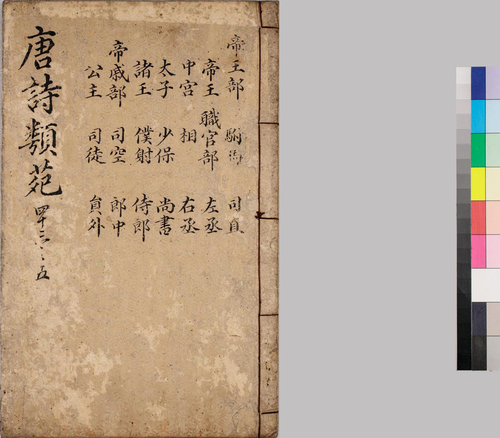 帝王部 駙馬 司直
帝王 職官部 左丞
中宮 相 右丞
太子 少保 尚書
諸王 僕射 侍郎
帝戚部 司空 郎中
公主 司徒 員外
唐詩類苑